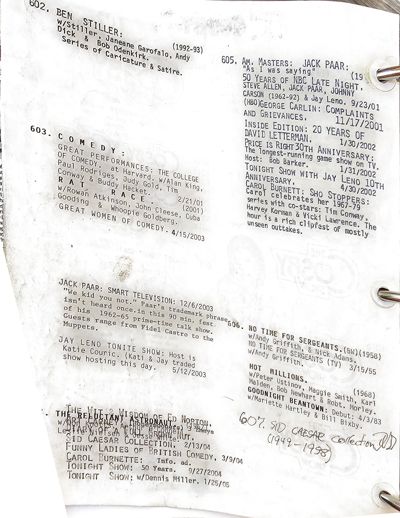 602. BEN STILLER: (1992-93)
w/Stiller, Janeane Garofalo, Andy
Dick & Bob Odenkirk.
Series of Caricature & Satire.
603. COMEDY:
GREAT PERFORMANCES: THE COLLEGE
OF COMEDY at Harvard. w/Alan King,
Paul Rodriges, Judy Gold, Tim
Conway & Buddy Hacket. 2/21/01
RAT RACE (2001)
w/Rowan Atkinson, John Cleese, Cuba
Gooding & Whoopie Goldberg.
GREAT WOMEN OF COMEDY. 4/15/2003
JACK PAAR: SMART TELEVISION: 12/6/2003
"We kid you not." Paar's trademark phrase
isn't heard once in this 90 min. fest
of his 1962-65 prime-time talk show.
Guests range from Fidel Castro to the
Muppets.
JAY LENO TONITE SHOW: Host is
Katie Counic. (Kati & Jay traded
show hosting this day. 5/12/2003
THE WIT & WISDOM OF ED NORTON.
THE RELUCTANT ASTRONAUT
SID CAESAR COLLECTION. 2/13/04
FUNNY LADIES OF BRITISH COMEDY, 3/9/04
CAROL BURNETTE: Info. ad.
TONIGHT SHOW: 50 Years. 9/27/2004
TONIGHT SHOW: w/Dennis Miller. 1/25/05
605. AM. MASTERS: JACK PAAR:
"As I was saying" (19
50 YEARS OF NBC LATE NIGHT.
STEVE ALLEN, JACK PAAR, JOHNNY
CARSON (1962-92) & Jay Leno. 9/23/01
(HBO)GEORGE CARLIN: COMPLAINTS
AND GRIEVANCES. 11/17/2001
INSIDE EDITION: 20 YEARS OF
DAVID LETTERMAN. 1/30/2002
PRICE IS RIGHT 30TH ANNIVERSARY:
The longest-running game show on TV.
Host: Bob Barker. 1/31/2002
TONIGHT SHOW WITH JAY LENO 10TH
ANNIVERSARY. 4/30/2002
CAROL BURNETT: SHO STOPPERS:
Carol celebrates her 1967-79
series with co-stars: Tim Conway,
Harvey Korman & Vicki Lawrence. The
hour is a rich clipfast of mostly
unseen outtakes.
606. NO TIME FOR SERGEANTS.(BW)(1958)
w/Andy Griffith, & Nick Adams.
NO TIME FOR SERGEANTS (TV) 3/15/55
w/Andy Griffith.
HOT MILLIONS. (1968)
w/Peter Ustinov, Maggie Smith, Karl
Malden, Bob Newhart & Robt. Morley.
GOODNIGHT BEANTOWN: Debut: 4/3/83
w/Mariette Hartley & Bill Bixby.
607. SID CAESAR Collection DVD
(1949-1958)